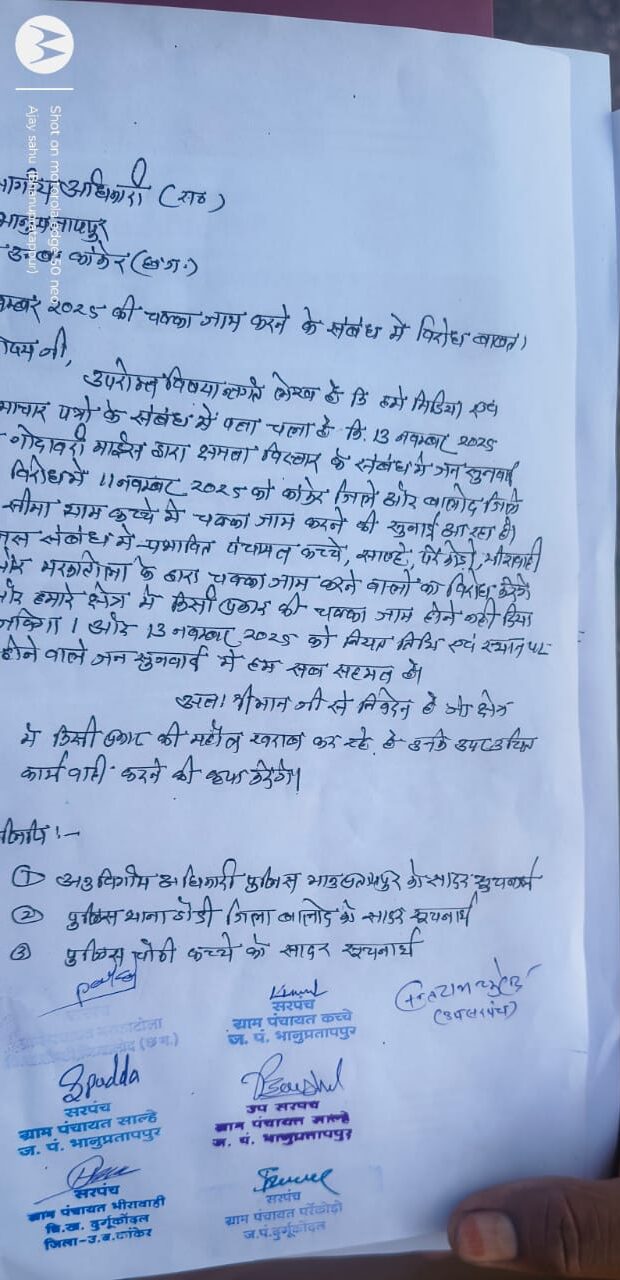 Shot on motorola edge 50 neo
Ajay sahu (Bhanupratappur)
अधिकारी (रा०)
भानुप्रतापपुर
कांकेर (छ.ग.)
2025 की चक्का जाम करने के संबंध में विरोध बाबत।
जी,
उपरोक्त विषयान्तर्गत लेख है कि हमें मिडिया एवं
पत्रों के संबंध में पता चला है कि 13 नवम्बर 2025
गोदावरी माईंस द्वारा क्षमता विस्तार के संबंध में जन सुनवाई
विरोध में 11 नवम्बर 2025 को कांकेर जिले और बालोद जिले
सीमा ग्राम कच्चे में चक्का जाम करने की सुनाई आ रहा है।
संबंध में प्रभावित पंचायत कच्चे, साल्हे, परेंकोड़ो, भीरावाही
के द्वारा चक्का जाम करने वालों का विरोध करेंगे
हमारे क्षेत्र में किसी प्रकार की चक्का जाम होने नहीं दिया
और 13 नवम्बर 2025 को नियत तिथि एवं स्थान पर
होने वाले जन सुनवाई में हम सब सहमत है।
अतः श्रीमान जी से निवेदन है जो क्षेत्र
में किसी प्रकार की महौल खराब कर रहे है उनके उपर उचित
कार्यवाही करने की कृपा करेंगे।
① अनुविभागीय अधिकारी पुलिस भानुप्रतापपुर को सादर सूचनार्थ
② पुलिस थाना डौंडी जिला बालोद को सादर सूचनार्थ
③ पुलिस चौकी कच्चे को सादर सूचनार्थ
सरपंच
ग्राम पंचायत कच्चे
ज. पं. भानुप्रतापपुर
(उपसरपंच)
(छ.ग.)
सरपंच
ग्राम पंचायत साल्हे
ज. पं. भानुप्रतापपुर
उप सरपंच
ग्राम पंचायत साल्हे
ज. पं. भानुप्रतापपुर
सरपंच
ग्राम पंचायत भीरावाही
वि.ख. दुर्गूकोंदल
जिला-उ.ब.कांकेर
सरपंच
ग्राम पंचायत परेंकोड़ो
ज.पं.दुर्गूकोंदल